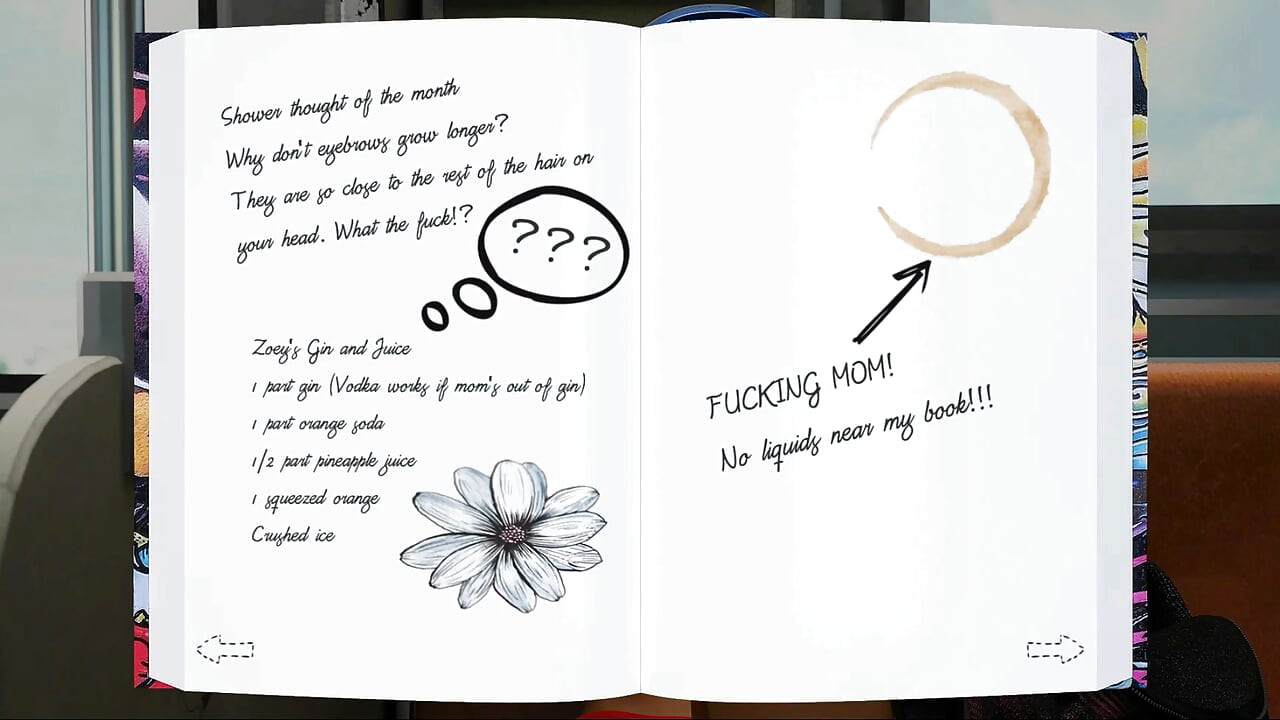 Shower thought of the month
Why don't eyebrows grow longer?
They are so close to the rest of the hair on
your head. What the fuck!?
???
Zoey's Gin and Juice
1 part gin (Vodka works if mom's out of gin)
1 part orange soda
1/2 part pineapple juice
1 squeezed orange
Crushed ice
FUCKING MOM!
No liquids near my book!!!